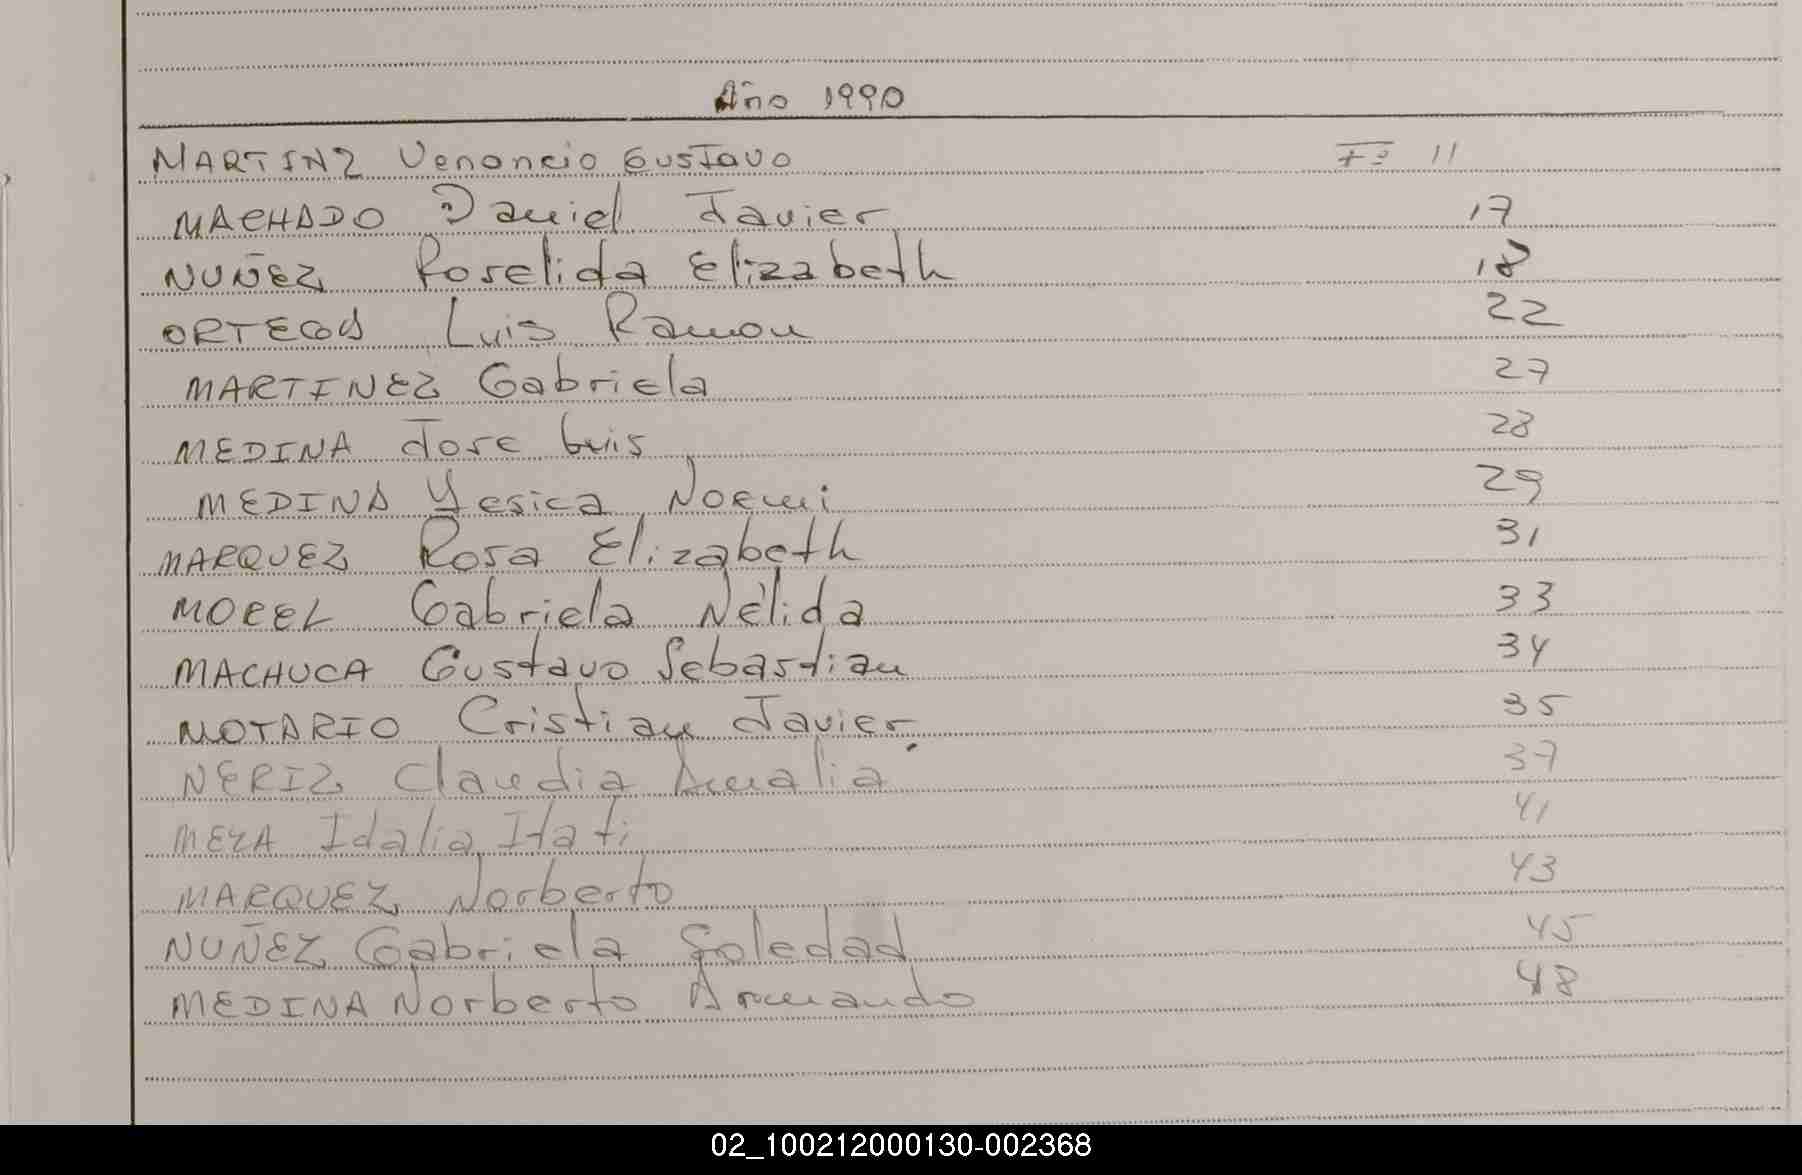 Año 1990
MARTINZ Venancio Gustavo Fº 11
MACHADO Daniel Javier 17
NUÑEZ Roselida Elizabeth 18
ORTEGA Luis Ramon 22
MARTINEZ Gabriela 27
MEDINA Jose Luis 28
MEDINA Yesica Noemi 29
MARQUEZ Rosa Elizabeth 31
MOREL Gabriela Nélida 33
MACHUCA Gustavo Sebastian 34
NOTARIO Cristian Javier. 35
NERIZ Claudia Amalia 37
MEZA Idalia Itati 41
MARQUEZ Norberto 43
NUÑEZ Gabriela Soledad 45
MEDINA Norberto Armando 48
02_100212000130-002368